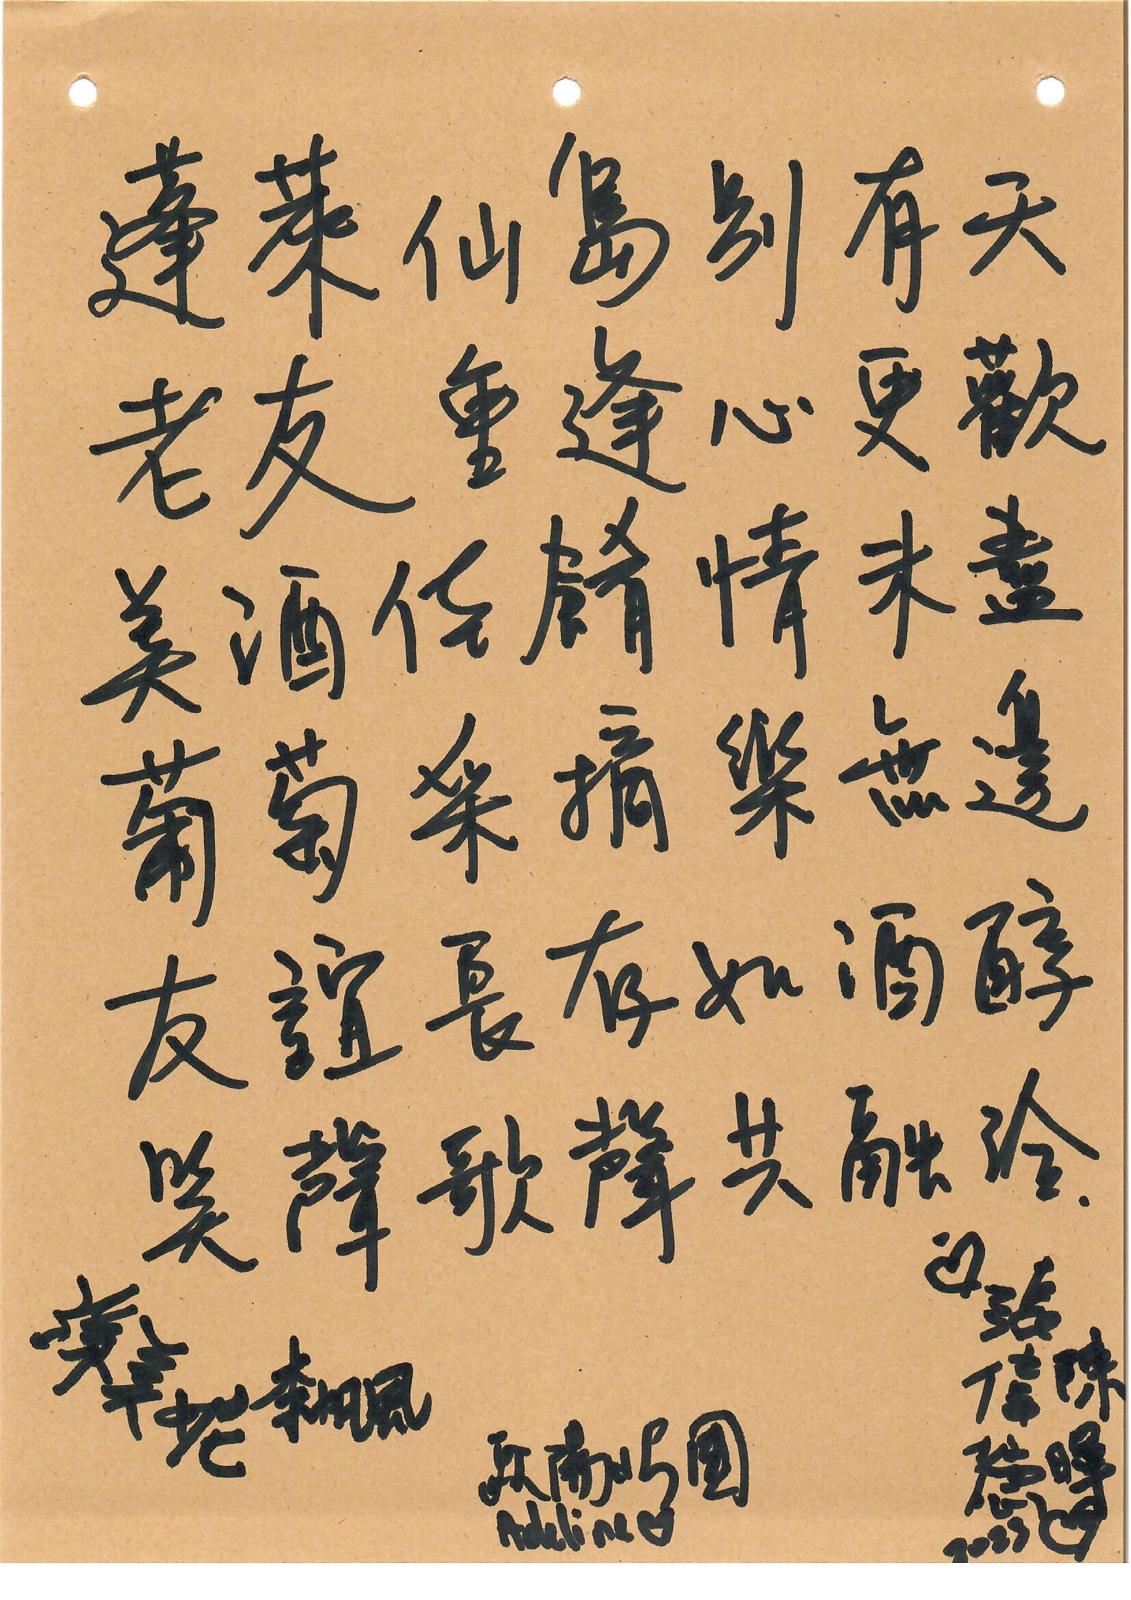 蓬萊仙島別有天
老友重逢心更歡
美酒佳餚情未盡
葡萄采摘樂無邊
友誼長存如酒醇
笑聲歌聲共融洽.
李帆風
Adeline
2023